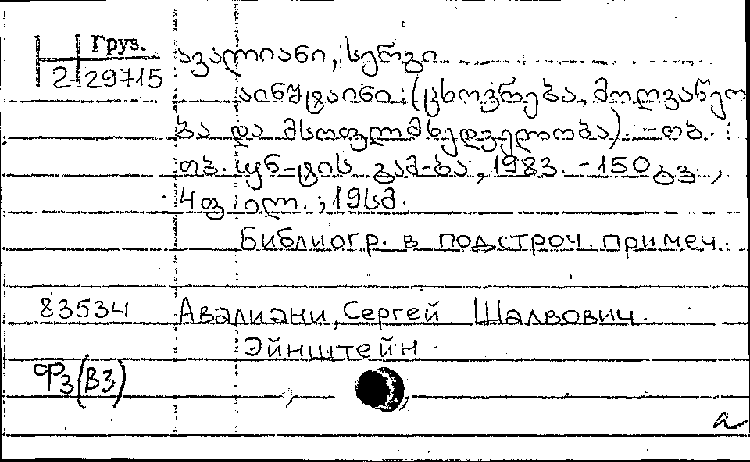 Груз.
2 29715
ავალიანი, სერგი
აინშტაინი: (ცხოვრება, მოღვაწეო
ბა და მსოფლმხედველობა). - თბ. :
თბ. უნ-ტის გამ-ბა, 1983. - 150 გვ.,
4 ფ. ილ. ; 19 სმ.
Библиогр. в подстроч. примеч.
83534 Авалиани, Сергей Шалвович
Эйнштейн
Ф3(В3)
а